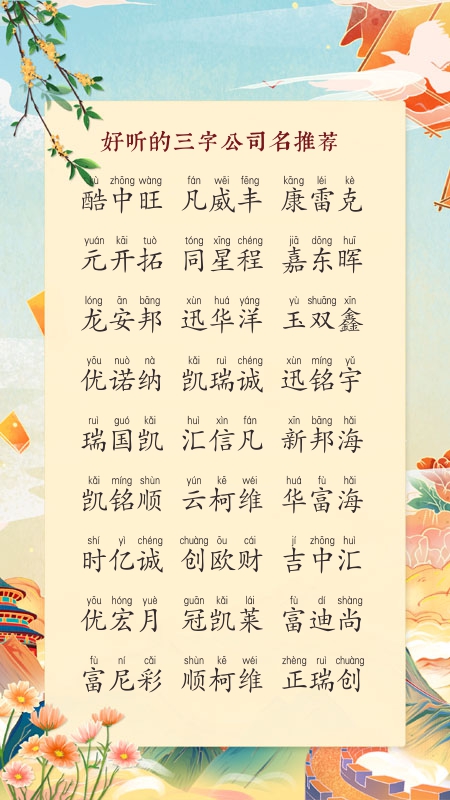 好听的三字公司名推荐
kù zhōng wàng fán wēi fēng kāng léi kè
酷中旺 凡威丰 康雷克
yuán kāi tuò tóng xīng chéng jiā dōng huī
元开拓 同星程 嘉东晖
lóng ān bāng xùn huá yáng yù shuāng xīn
龙安邦 迅华洋 玉双鑫
yōu nuò nà kǎi ruì chéng xùn míng yǔ
优诺纳 凯瑞诚 迅铭宇
ruì guó kǎi huì xìn fán xīn bāng hǎi
瑞国凯 汇信凡 新邦海
kǎi míng shùn yún kē wéi huá fù hǎi
凯铭顺 云柯维 华富海
shí yì chéng chuàng ōu cái jí zhōng huì
时亿诚 创欧财 吉中汇
yōu hóng yuè guān kǎi lái fù dí shàng
优宏月 冠凯莱 富迪尚
fù ní cǎi shùn kē wéi zhèng ruì chuàng
富尼彩 顺柯维 正瑞创